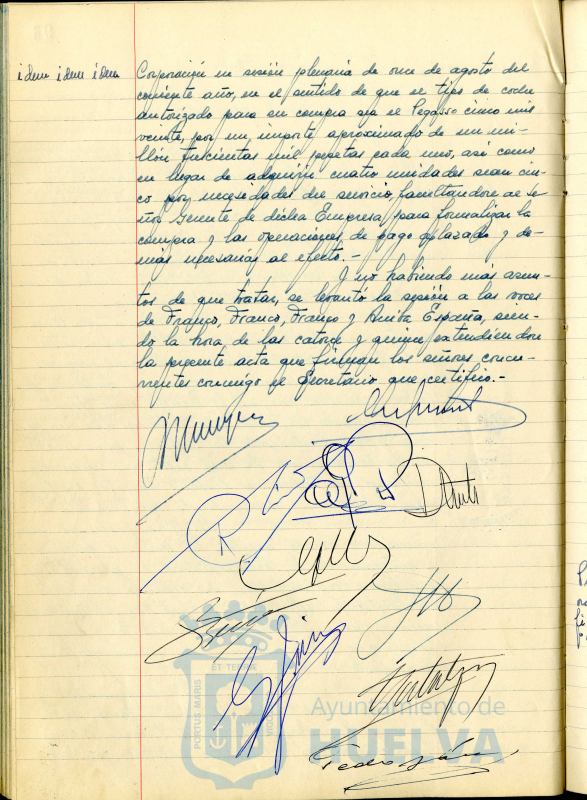 idem idem idem
Corporación en sesión plenaria de once de agosto del
corriente año, en el sentido de que el tipo de coche
autorizado para su compra sea el Pegasso cinco mil
veinte, por un importe aproximado de un mi-
llón trescientas mil pesetas cada uno, así como
en lugar de adquirir cuatro unidades sean cin-
co por necesidades del servicio, facultandose al Se-
ñor Gerente de dicha Empresa para formalizar la
compra y las operaciones de pago aplazado y de-
más necesarias al efecto.-
Y no habiendo más asun-
tos de que tratar, se levantó la sesión a las voces
de Franco, Franco, Franco y Arriba España, sien-
do la hora de las catorce y quince extendiendose
la presente acta que firman los señores concu-
rrentes conmigo el Secretario que certifico.-
PORTUS MARIS
ET TERRAE
Ayuntamiento de
HUELVA
Pedro